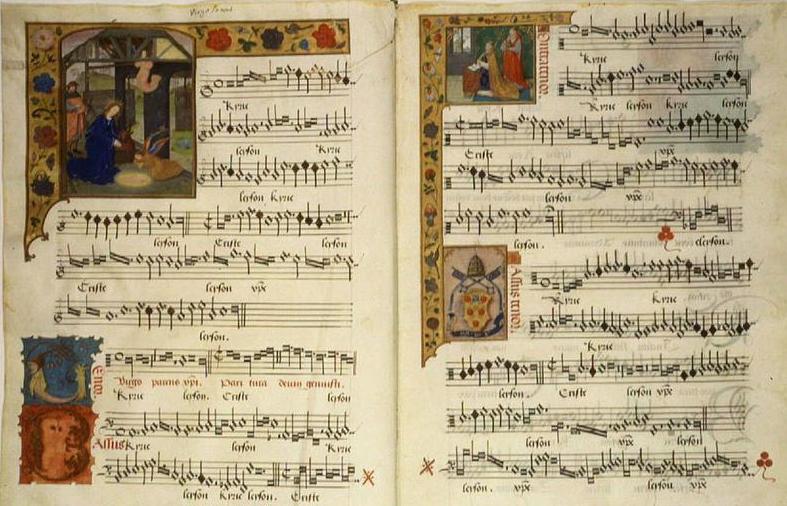 Kyrie
leyson Kyrie
leyson Kyrie
leyson Criste leyson
Criste leyson xpe
leyson.
Virgo parens xpi. Paritura deum genuisti.
Kyrie leyson. Criste leyson
Bassus Kyrie leyson Kyrie
leyson Kyrie leyson. Criste
Kyrie leyson
Kyrie leyson Kyrie leyson
Criste xpe
leyson xpe
leyson. eleyson.
Kyrie Kyrie
Kyrie
leyson. Criste leyson xpe
leyson xpe leyson
leyson. xpe leyson xpe